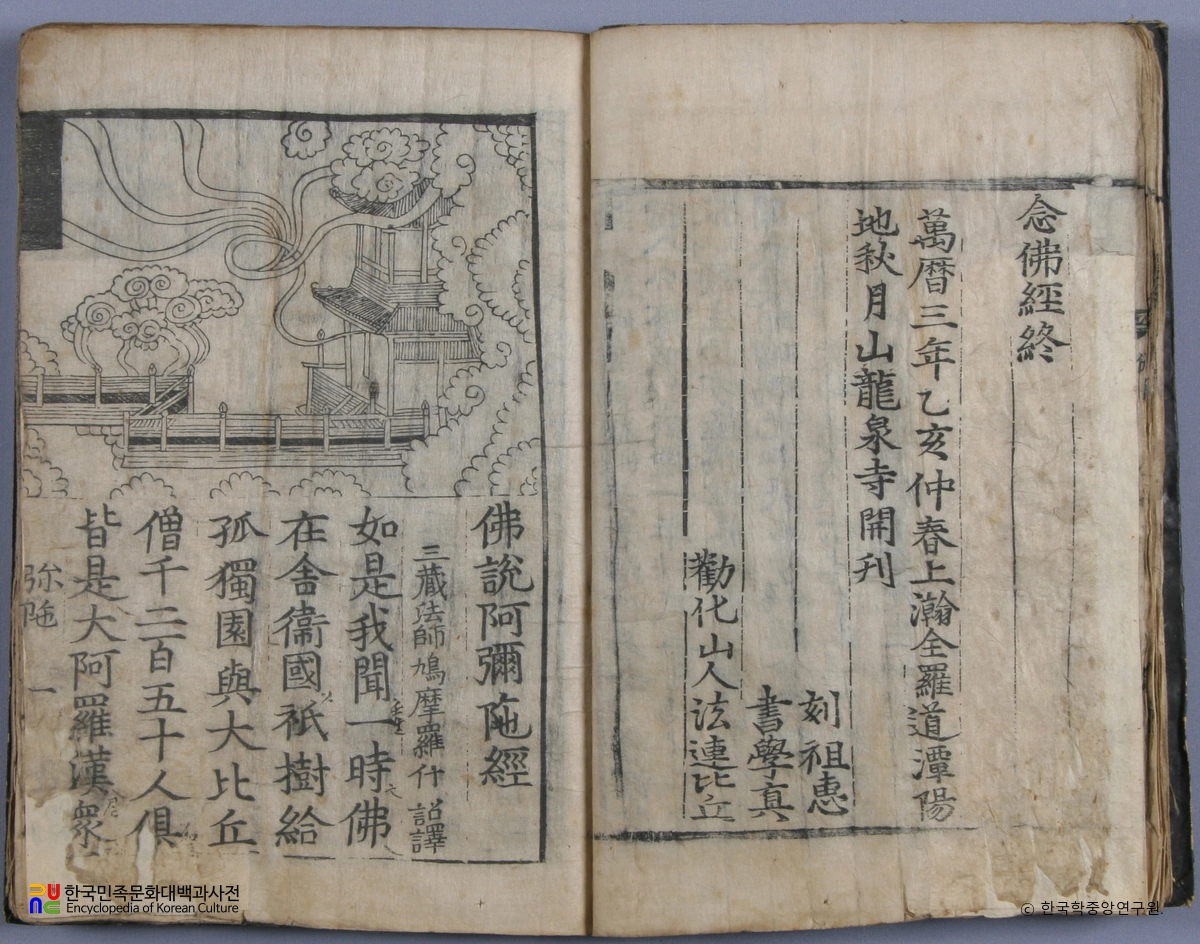 念佛經終
萬曆三年乙亥仲春上瀚全羅道潭陽
地秋月山龍泉寺開刋
刻祖惠
書學真
勸化山人法連比丘
佛說阿彌陁經
三藏法師鳩摩羅什 詔譯
如是我聞一時佛
在舍衞國祇樹給
孤獨園與大比丘
僧千二百五十人俱
皆是大阿羅漢衆
弥陁 一
한국민족문화대백과사전
Encyclopedia of Korean Culture
© 한국학중앙연구원.